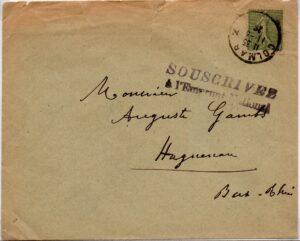 COLMAR
SOUSCRIVEZ
à l'Emprunt National
Monsieur
Auguste
Haguenau
Bas-Rhin